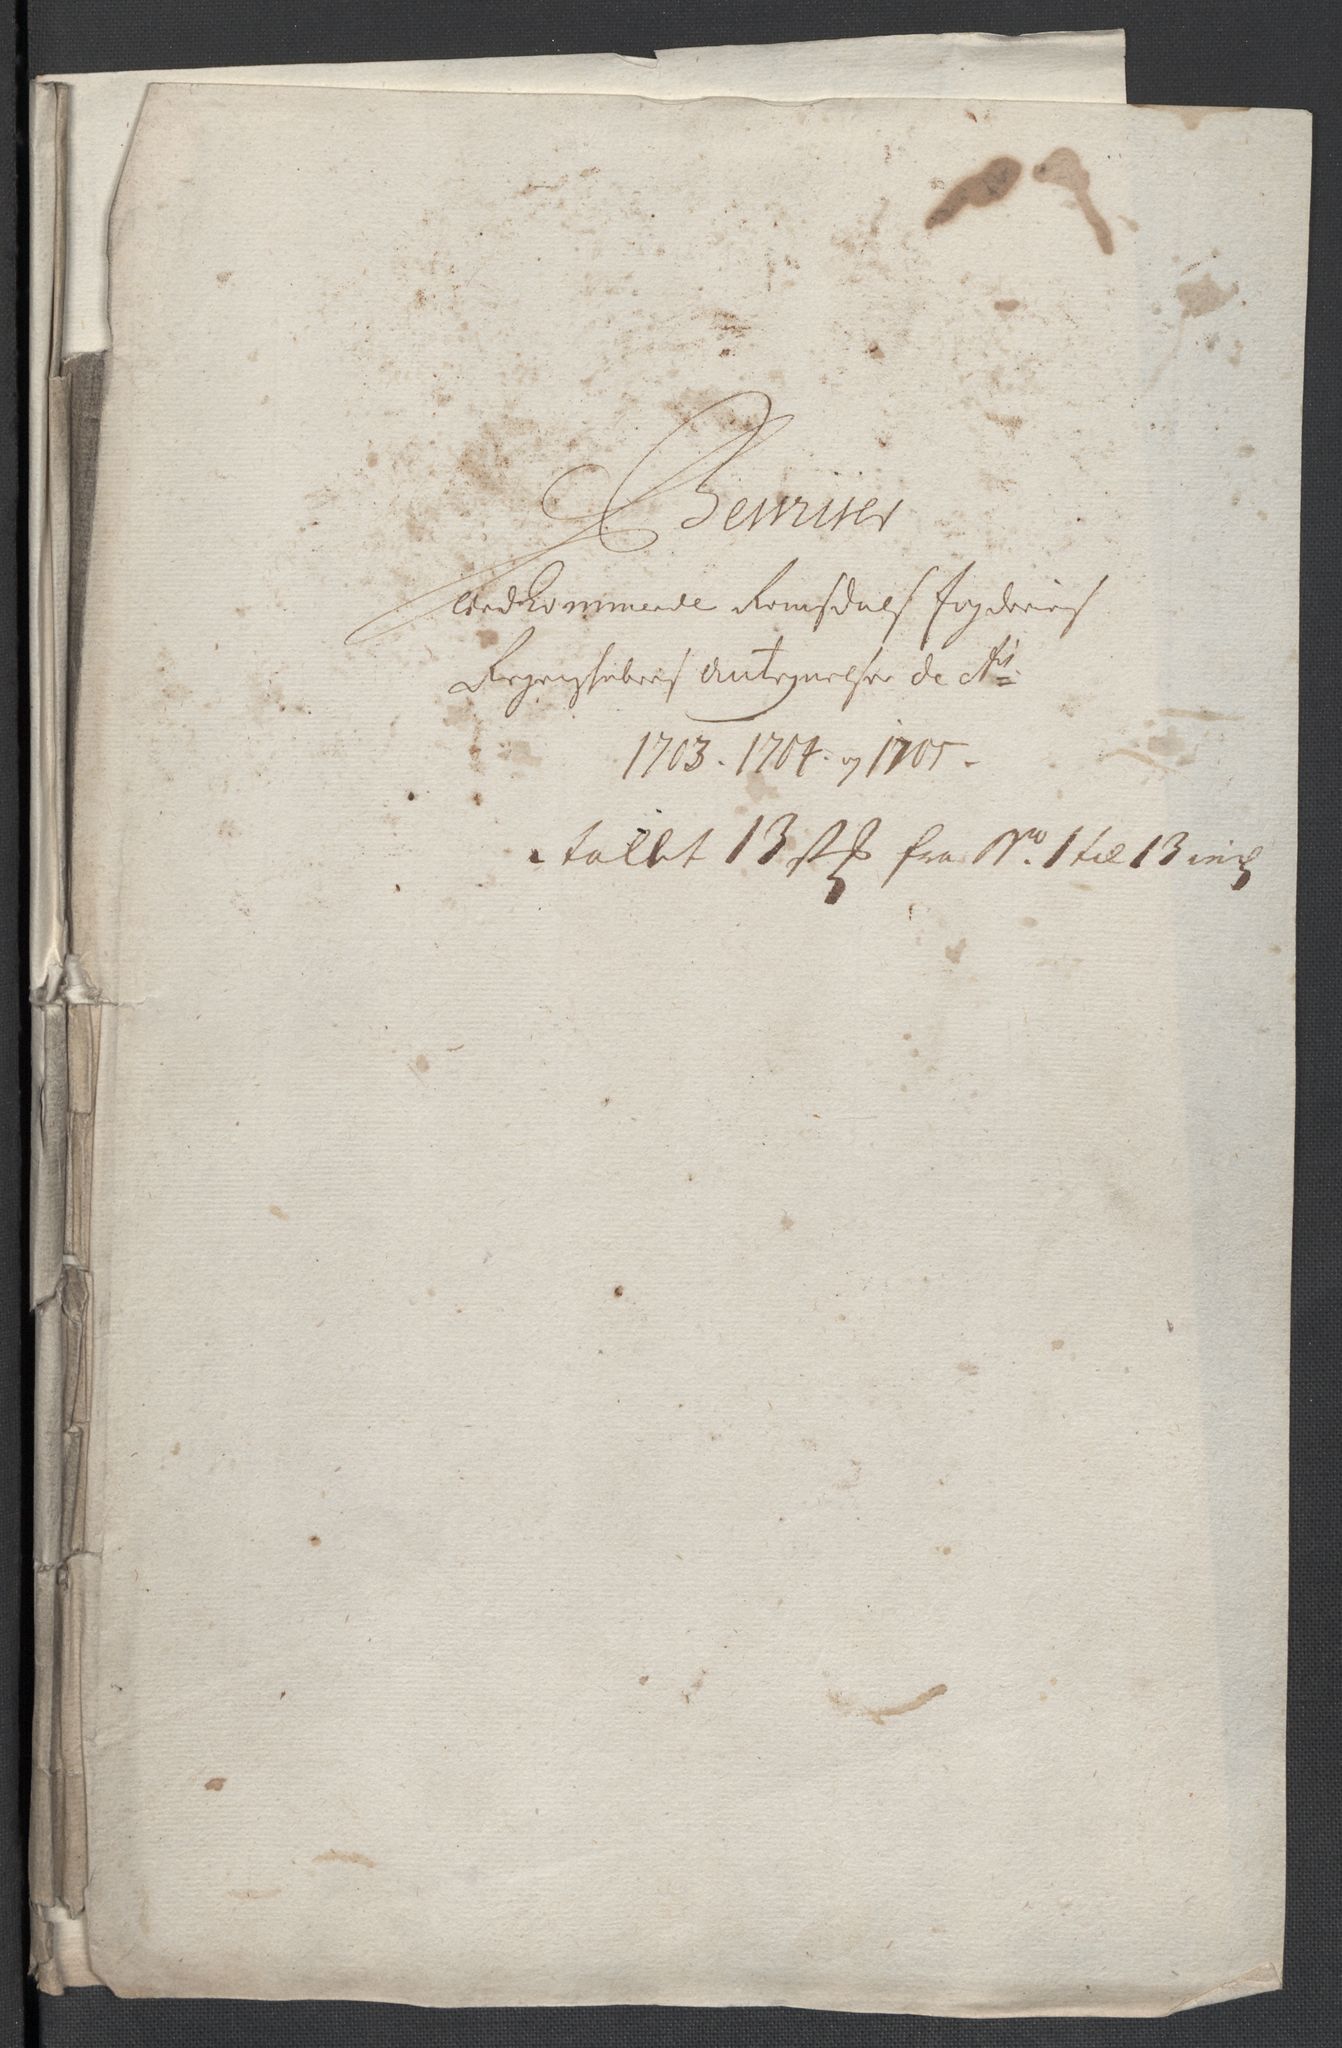 Beviser
Vedkommende Romsdals fogderies
Regenskabers Antegnelser de Aō
1703. 1704. og 1705.
tallet 13 st fra No. 1 til 13 incl